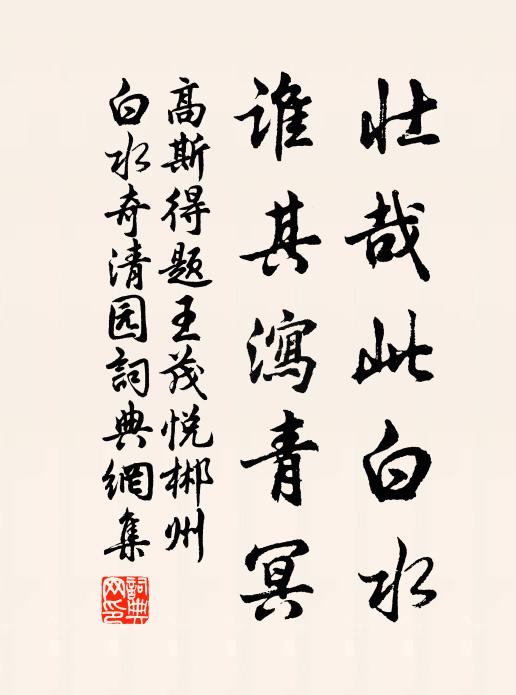 壮哉此白水
谁其瀉青冥
高斯得题王茂悦郴州
白水奇清园詞典網集
詞典网印